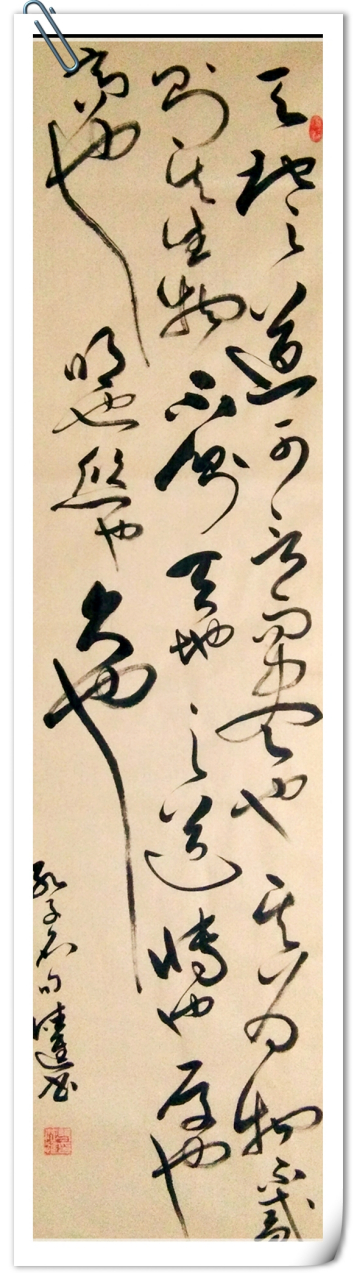 天地之道可一言而尽也其为物不贰
则其生物不测天地之道博也厚也
高也明也悠也久也
孔子名句